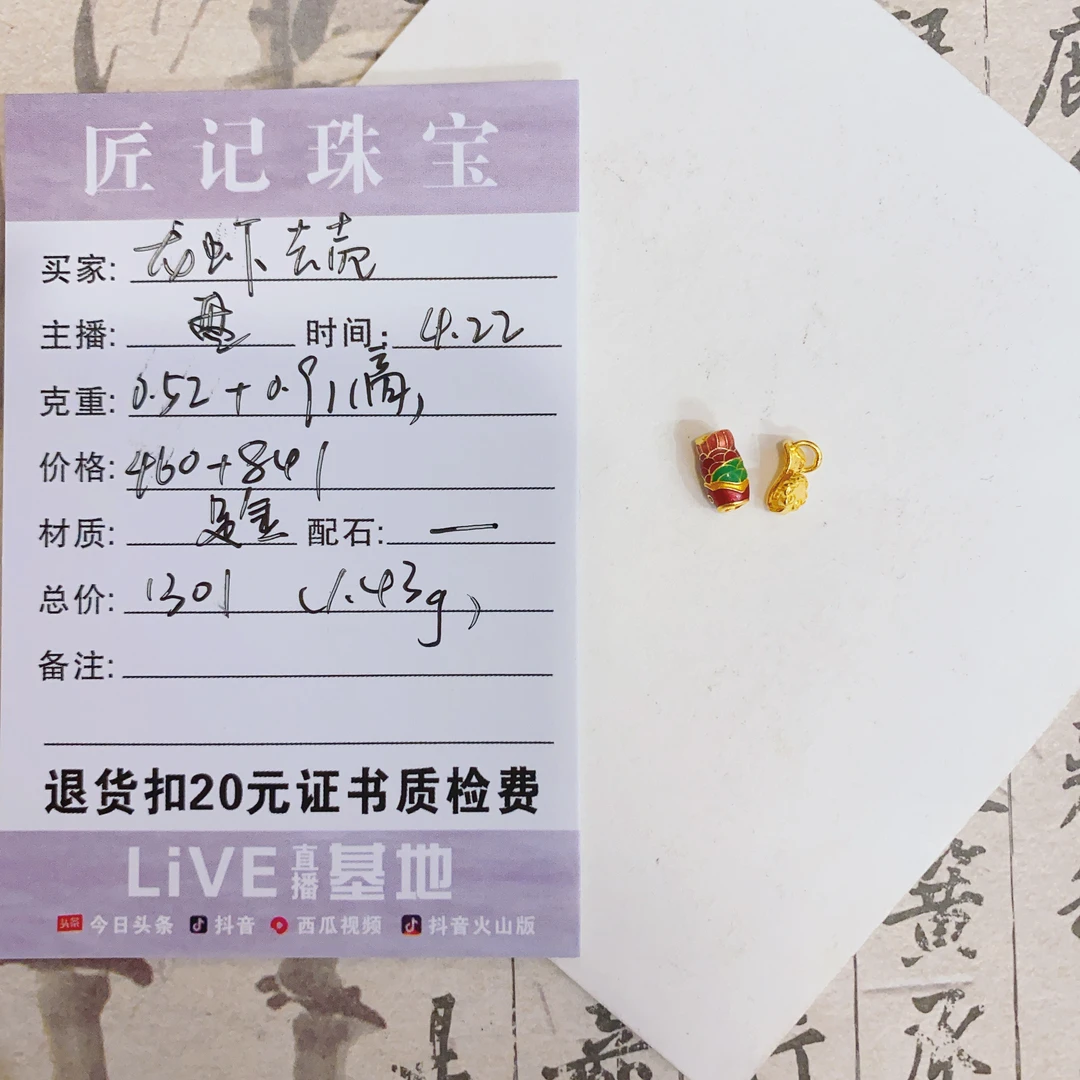 匠记珠宝
买家: 龙虾去壳
主播: 时间: 4.22
克重: 0.52+0.91(高)
价格: 460+841
材质: 足金 配石: 一
总价: 1301 (1.43g)
备注:
退货扣20元证书质检费
LiVE直播基地
头条 今日头条 抖音 西瓜视频 抖音火山版
簧